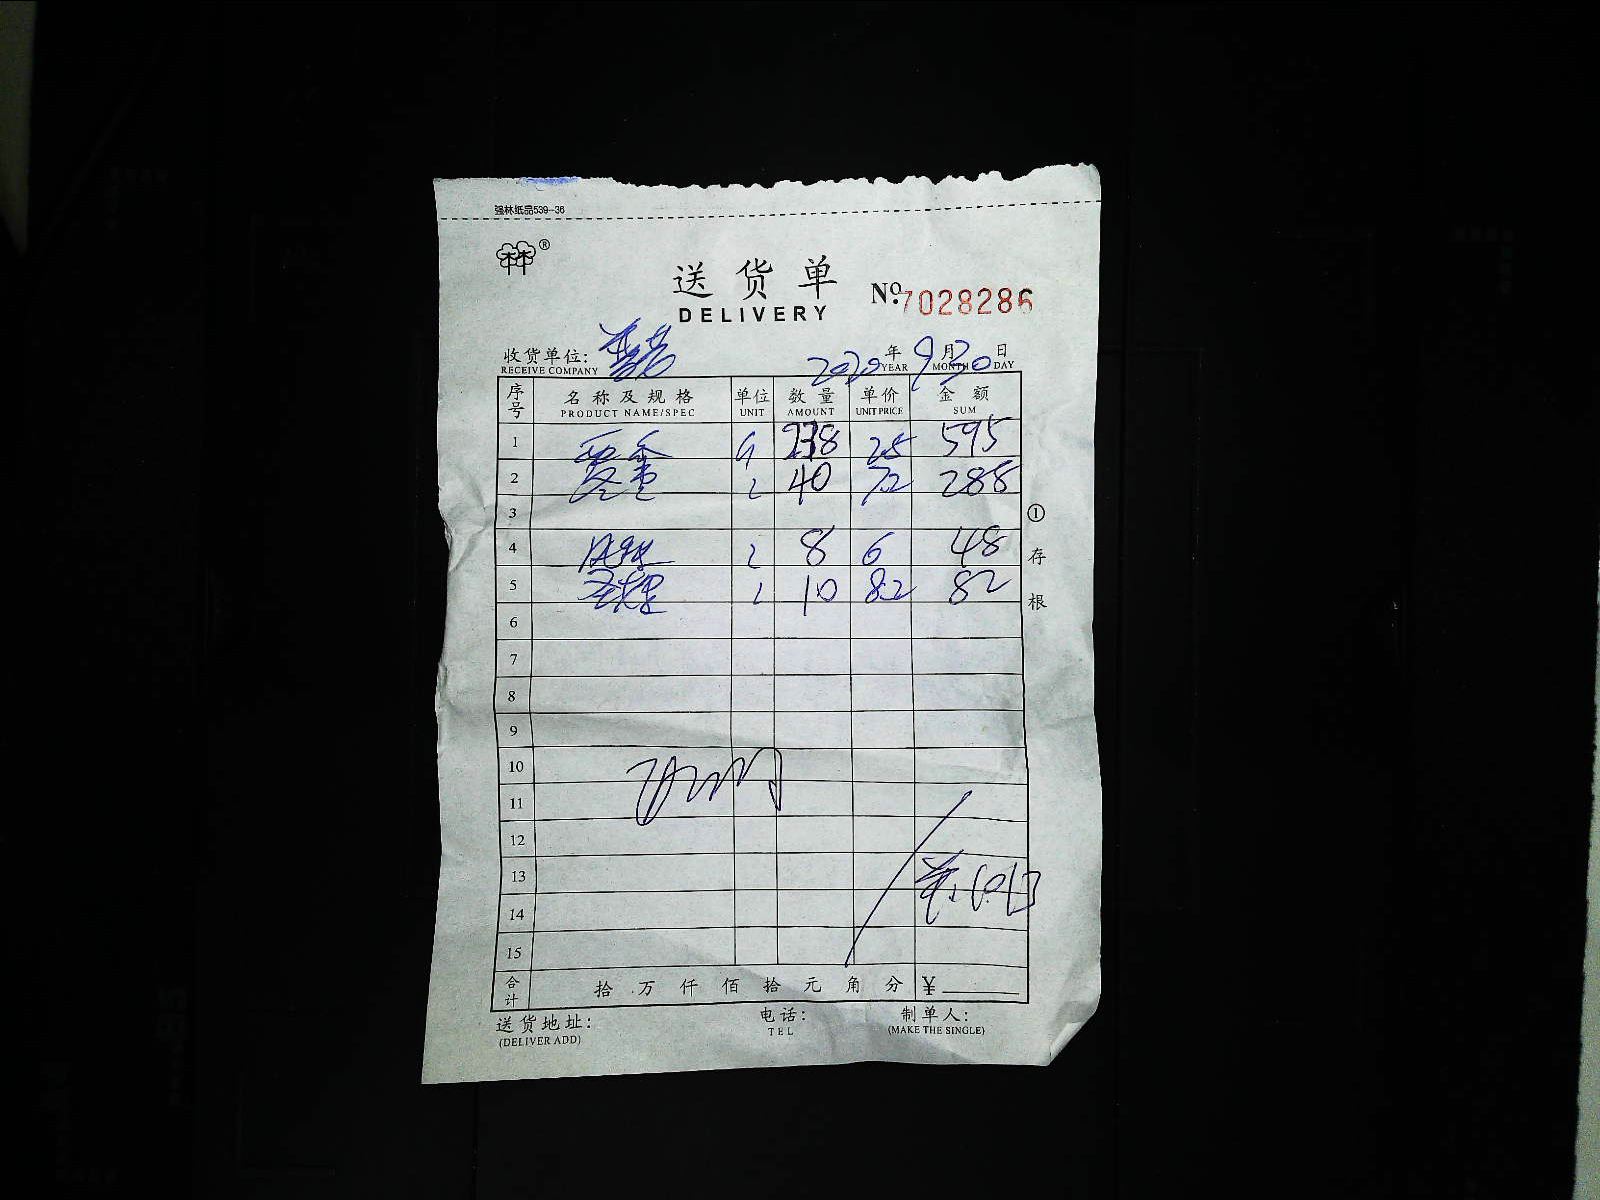 强林纸品539-36
®
送货单
DELIVERY
№ 7028286
收货单位: 2020年9月30日
RECEIVE COMPANY YEAR MONTH DAY
序号 名称及规格 单位 数量 单价 金额
PRODUCT NAME/SPEC UNIT AMOUNT UNIT PRICE SUM
1 238 2.5 595
2 40 7.2 288
3
4 8 6 48
5 10 8.2 82
6
7
8
9
10
11
12
13
14
15
合计 拾 万 仟 佰 拾 元 角 分 ¥
送货地址: 电话: 制单人:
(DELIVER ADD) TEL (MAKE THE SINGLE)
①存根